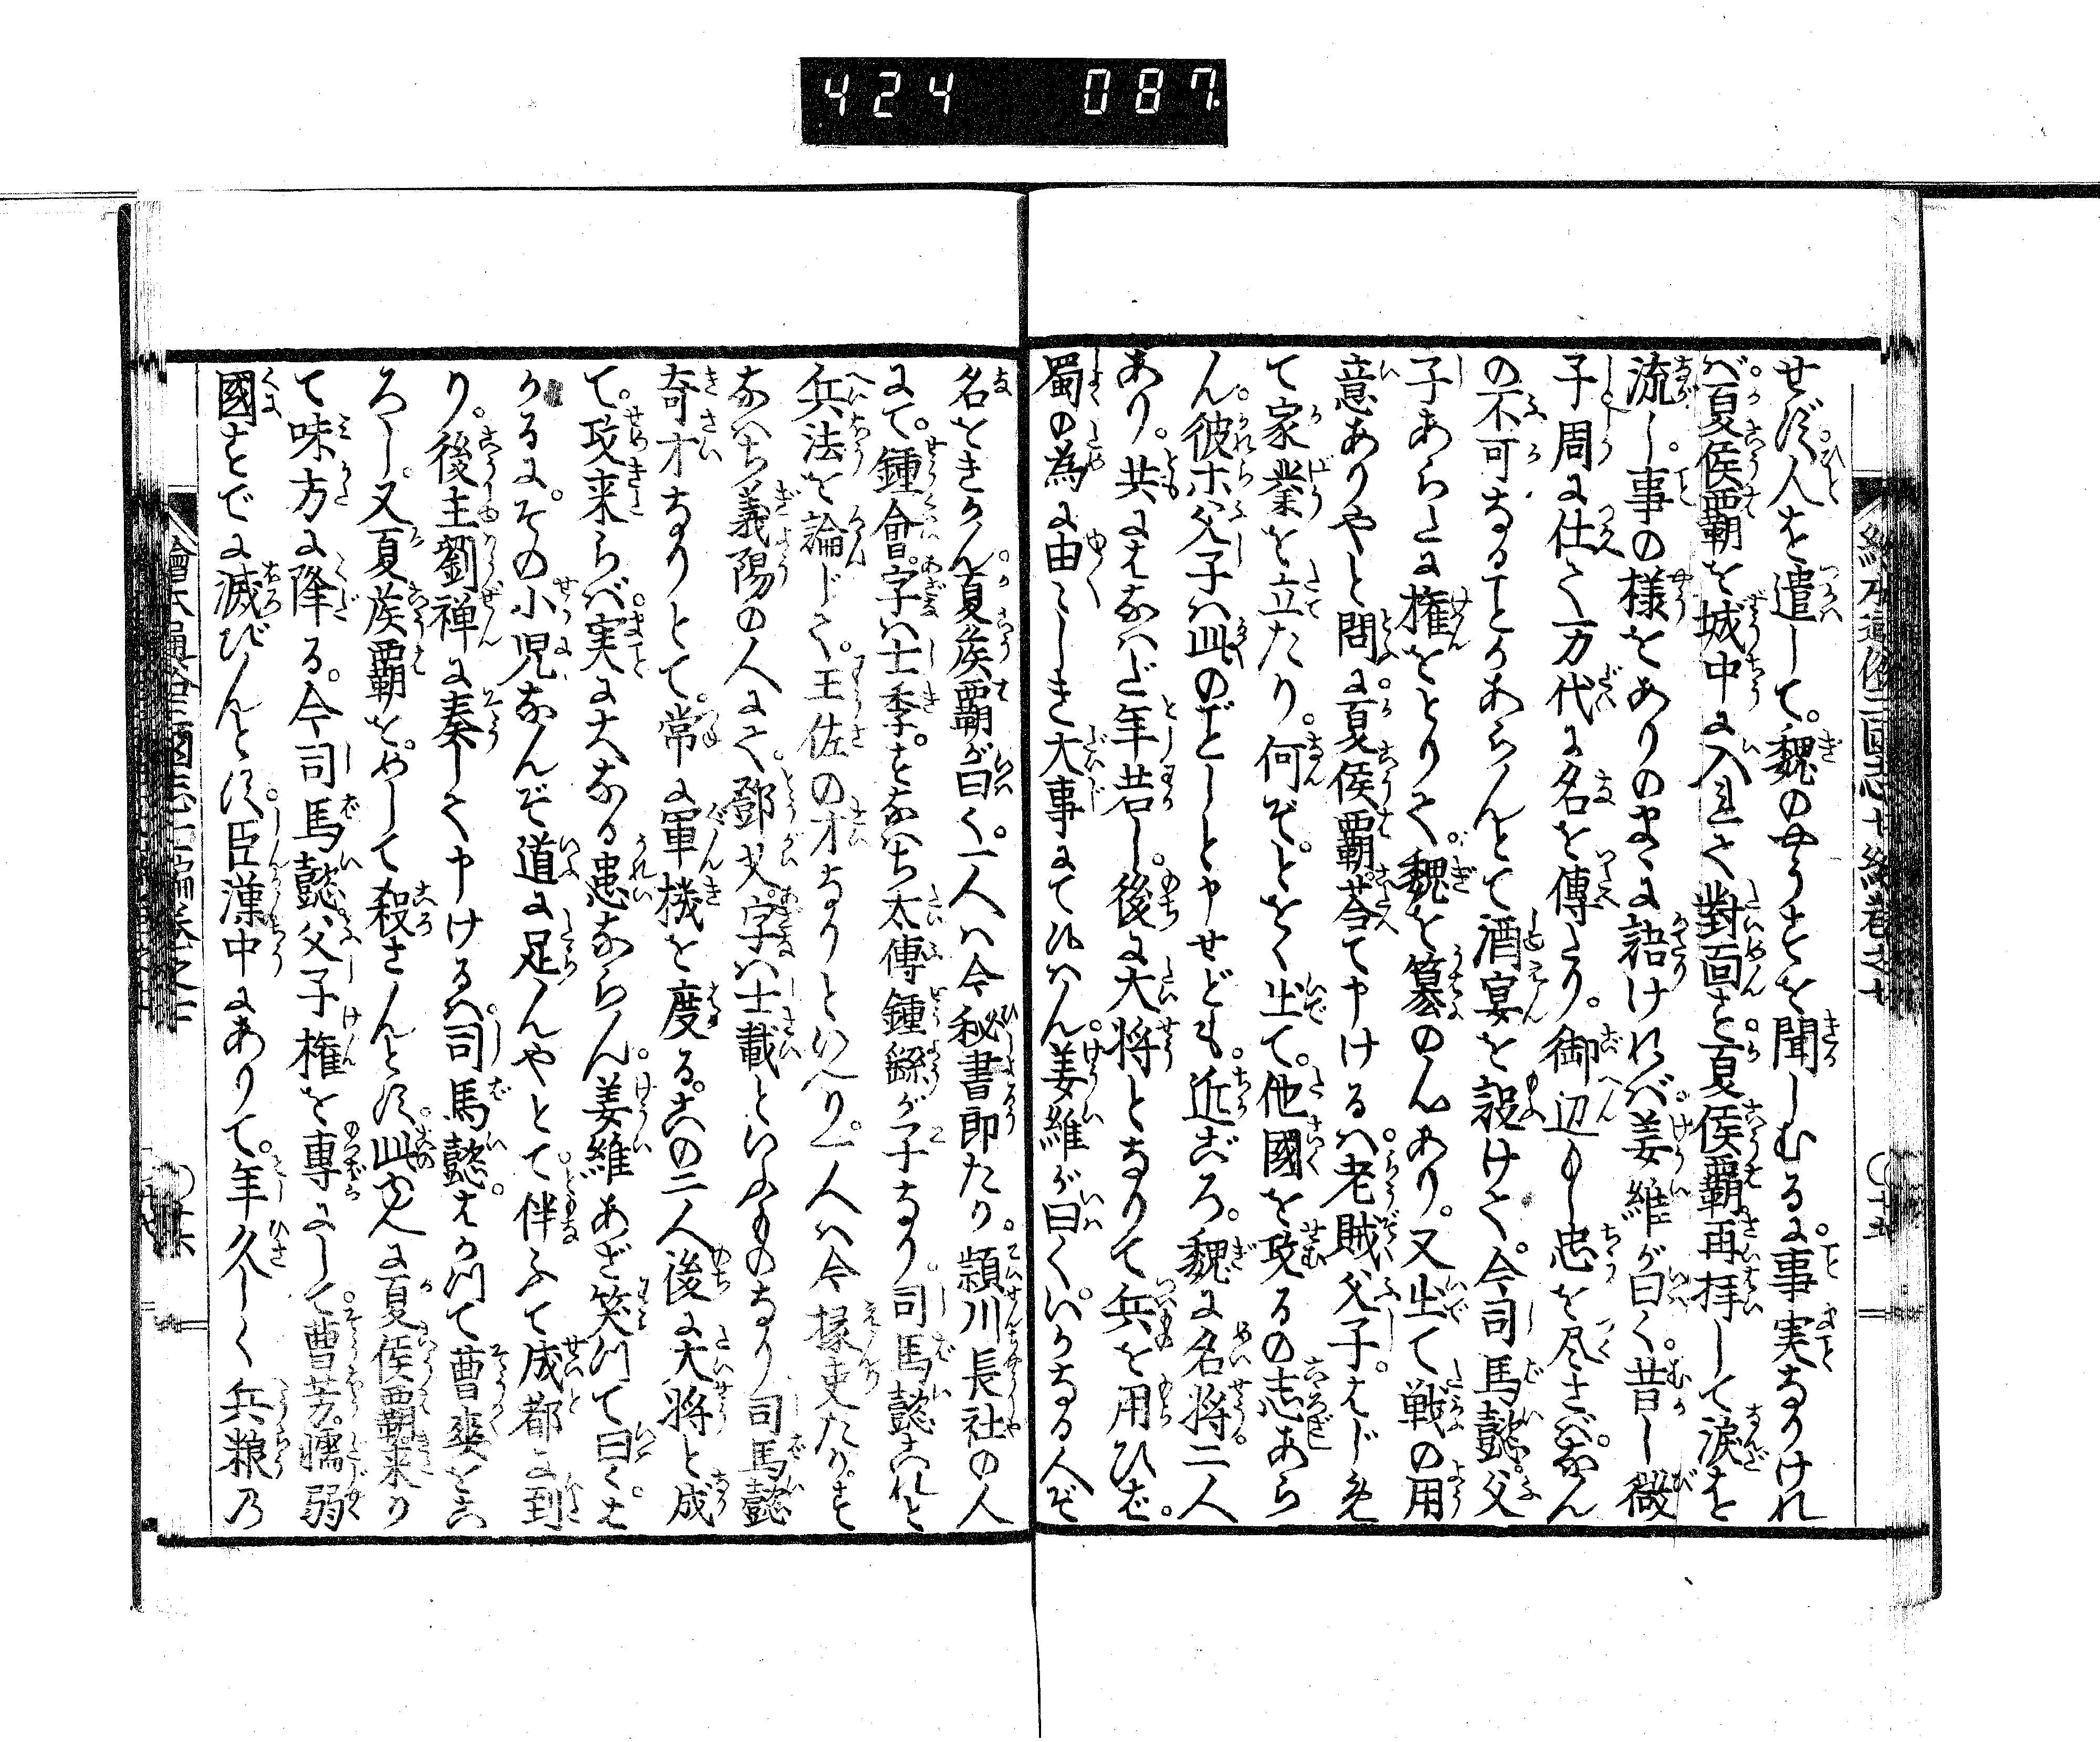 424 087
せず。人を遣して。魏のやうすを聞しむるに。事実なりけれ
バ。夏侯覇を城中に入れて對面す。夏侯覇再拝して涙を
流し。事の様をありのまゝに語けれバ。姜維が曰く。昔し微
子周に仕て万代に名を傳たり。御辺もし忠を尽さバ。なん
の不可なることかあらんとて酒宴を設けて。今司馬懿父
子あらたに権をとりて。魏を簒のんあり。又出て戦の用
意ありやと問に。夏侯覇荅て申けるハ。老賊父子。はじめ
て家業を立たり。何ぞ。とをく出て。他國を攻るの志あら
ん。彼ホ父子ハ此のごとしと申せども。近ごろ。魏に名将二人
あり。共にはなハだ年若し。後に大将となりて兵を用ひば。
蜀の為に由々しき大事にて候ハん。姜維が曰く。いかなる人ぞ
名をきかん。夏侯覇が曰く。一人ハ今秘書郎たり。潁川長社の人
にて。鍾會。字ハ士季。すなハち太傅鍾繇が子なり。司馬懿これと
兵法を論じて。王佐の才なりといへり。一人ハ今掾吏たり。す
なハち義陽の人にて。鄧艾。字ハ士載といふものなり司馬懿
奇才なりとて。常に軍機を度る。この二人後に大将と成
て。攻来らバ。実に大なる患ならん。姜維あざ笑ひて曰く。は
かるに。その小児なんぞ道に足んやとて。伴ふて成都に到
り。後主劉禅に奏して申けるハ。司馬懿。はかつて曹爽をこ
ろし。又夏侯覇を。めして殺さんとす。此ゆへに夏侯覇来り
て味方に降る。今司馬懿。父子権を專にして。曹芳。懦弱
國すでに滅びんとす。臣漢中にありて。年久しく兵粮乃
十五